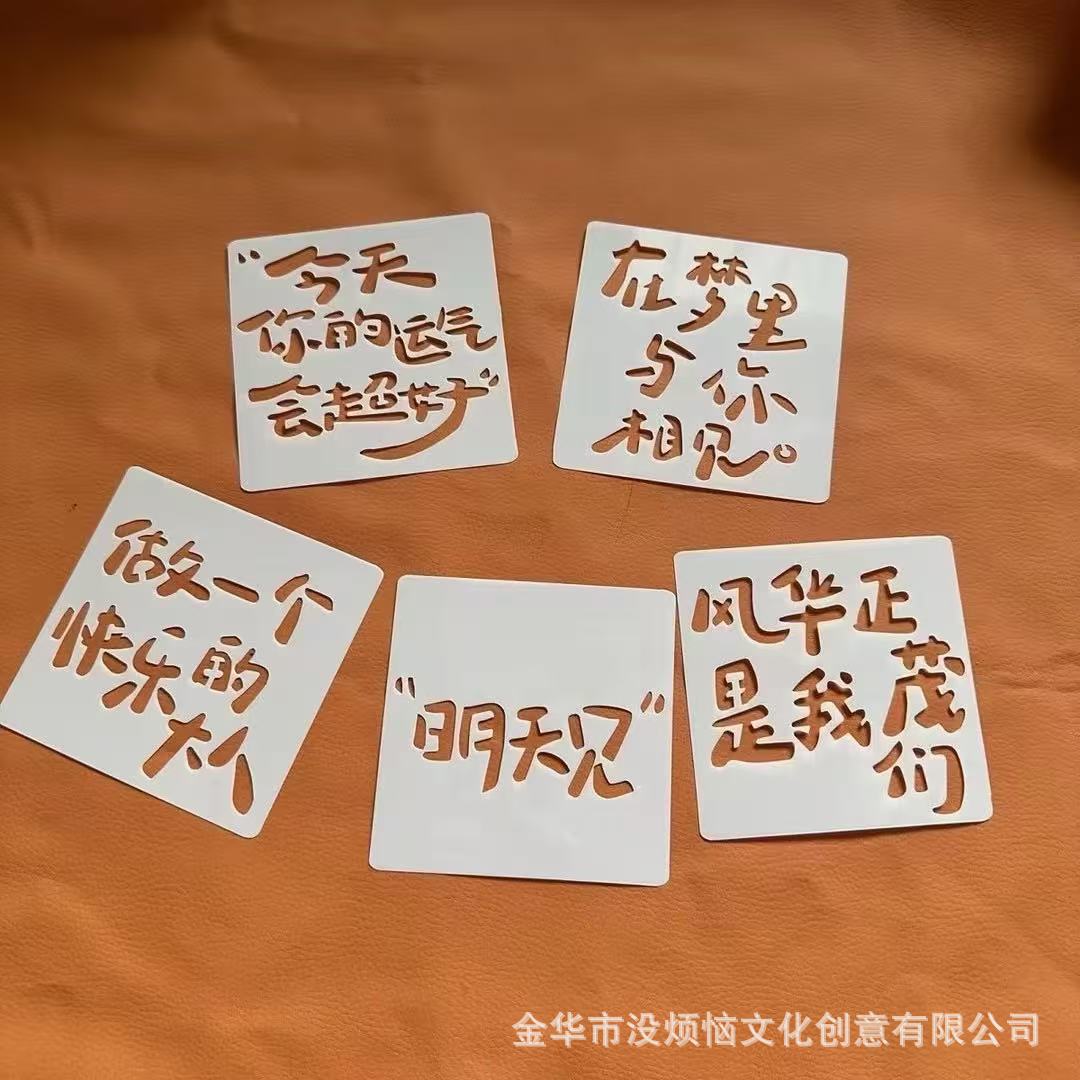 “今天
你的运气
会超好”
在梦里
与你
相见。
做一个
快乐的
大人
“明天见”
风华正
茂
是我
们
金华市没烦恼文化创意有限公司